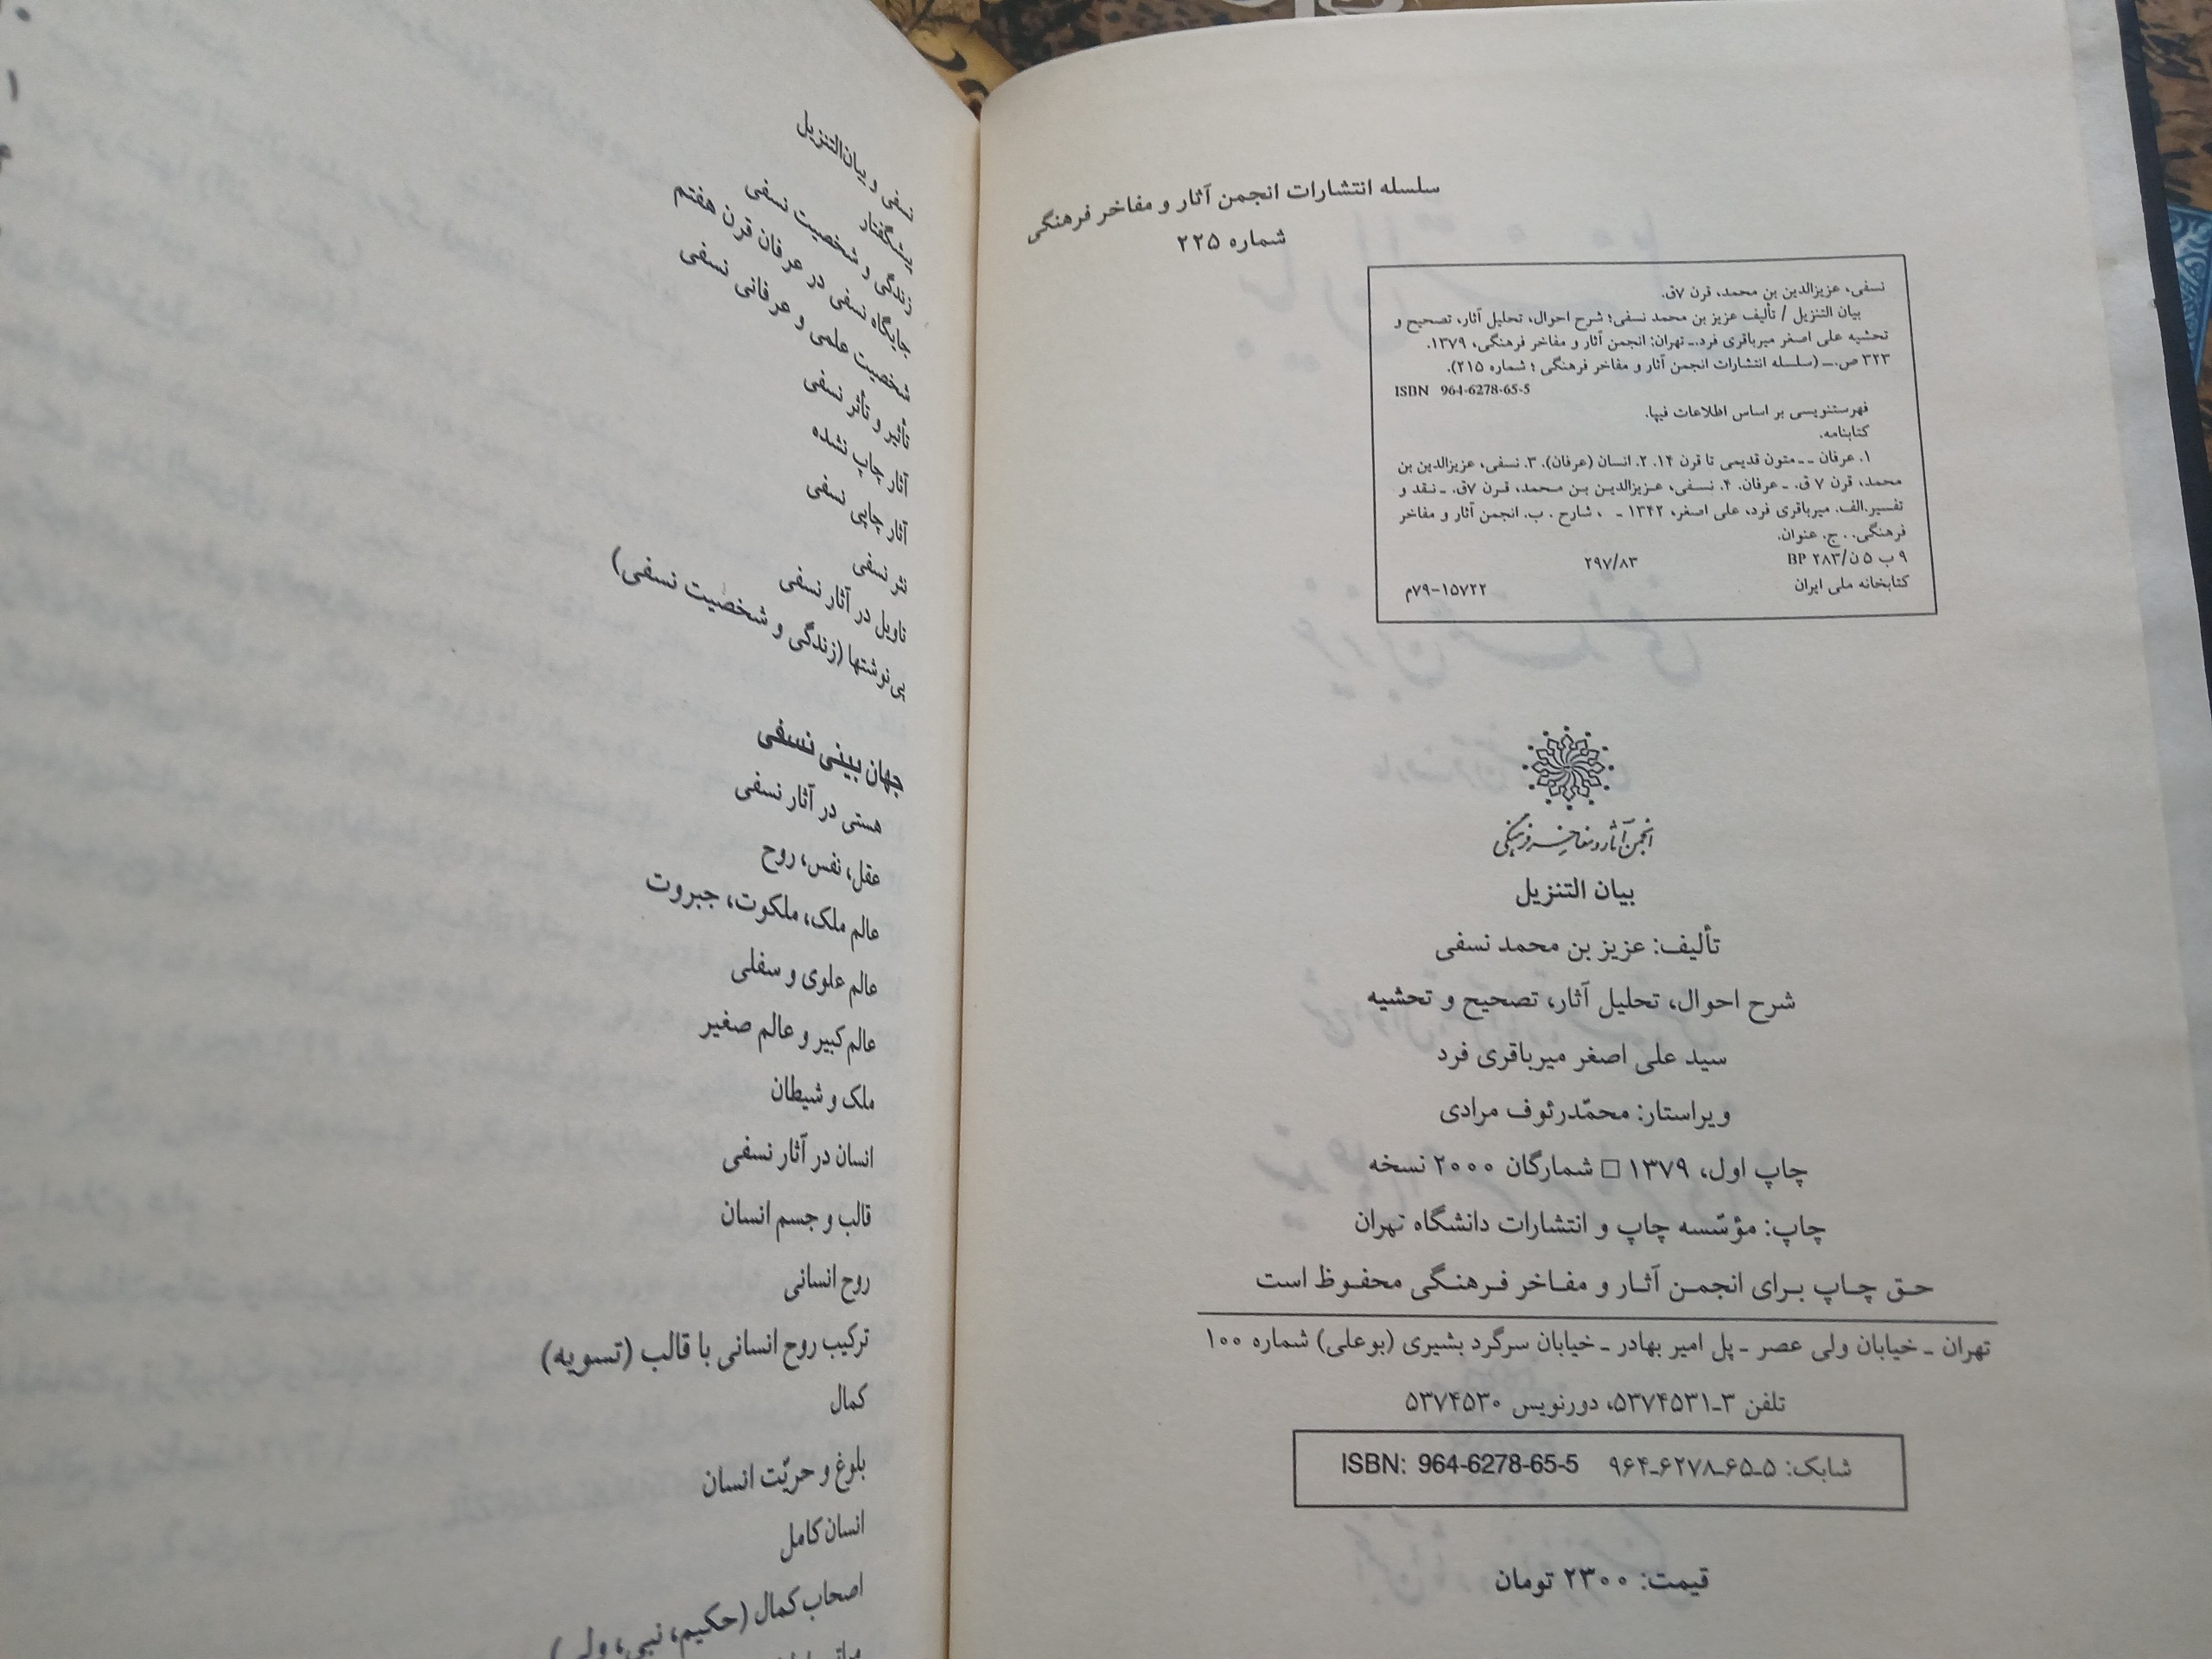 سلسله انتشارات انجمن آثار و مفاخر فرهنگی
شماره ۲۲۵
نسفی، عزیزالدین بن محمد، قرن ۷ق.
بیان التنزیل / تألیف عزیز بن محمد نسفی؛ شرح احوال، تحلیل آثار، تصحیح و
تحشیه علی اصغر میرباقری فرد.ـ تهران: انجمن آثار و مفاخر فرهنگی، ۱۳۷۹.
۳۲۳ ص.ـ (سلسله انتشارات انجمن آثار و مفاخر فرهنگی ؛ شماره ۲۱۵).
ISBN 964-6278-65-5
فهرستنویسی بر اساس اطلاعات فیپا.
کتابنامه.
۱. عرفان ـ ـ متون قدیمی تا قرن ۱۴. ۲. انسان (عرفان). ۳. نسفی، عزیزالدین بن
محمد، قرن ۷ ق. ـ عرفان. ۴. نسفی، عزیزالدین بن محمد، قرن ۷ق. ـ نقد و
تفسیر.الف. میرباقری فرد، علی اصغر، ۱۳۴۲ ـ ، شارح . ب. انجمن آثار و مفاخر
فرهنگی. . ج. عنوان.
۹ ب ۵ ن/۲۸۳ BP ۲۹۷/۸۳
کتابخانه ملی ایران ۱۵۷۲۲-۷۹م
انجمن آثار و مفاخر فرهنگی
بیان التنزیل
تألیف: عزیز بن محمد نسفی
شرح احوال، تحلیل آثار، تصحیح و تحشیه
سید علی اصغر میرباقری فرد
ویراستار: محمّدرئوف مرادی
چاپ اول، ۱۳۷۹ □ شمارگان ۲۰۰۰ نسخه
چاپ: مؤسّسه چاپ و انتشارات دانشگاه تهران
حق چاپ برای انجمن آثار و مفاخر فرهنگی محفوظ است
تهران ـ خیابان ولی عصر ـ پل امیر بهادر ـ خیابان سرگرد بشیری (بوعلی) شماره ۱۰۰
تلفن ۳ـ۵۳۷۴۵۳۱، دورنویس ۵۳۷۴۵۳۰
شابک: ۵ـ۶۵ـ۶۲۷۸ـ۹۶۴ ISBN: 964-6278-65-5
قیمت: ۲۳۰۰ تومان
نسفی و بیان‌التنزیل
پیشگفتار
زندگی و شخصیت نسفی
جایگاه نسفی در عرفان قرن هفتم
شخصیت علمی و عرفانی نسفی
تأثیر و تأثر نسفی
آثار چاپ نشده
آثار چاپی نسفی
نثر نسفی
تاویل در آثار نسفی
پی‌نوشتها (زندگی و شخصیت نسفی)
جهان بینی نسفی
هستی در آثار نسفی
عقل، نفس، روح
عالم ملک، ملکوت، جبروت
عالم علوی و سفلی
عالم کبیر و عالم صغیر
ملک و شیطان
انسان در آثار نسفی
قالب و جسم انسان
روح انسانی
ترکیب روح انسانی با قالب (تسویه)
کمال
بلوغ و حریّت انسان
انسان کامل
اصحاب کمال (حکیم، نبی، ولی)